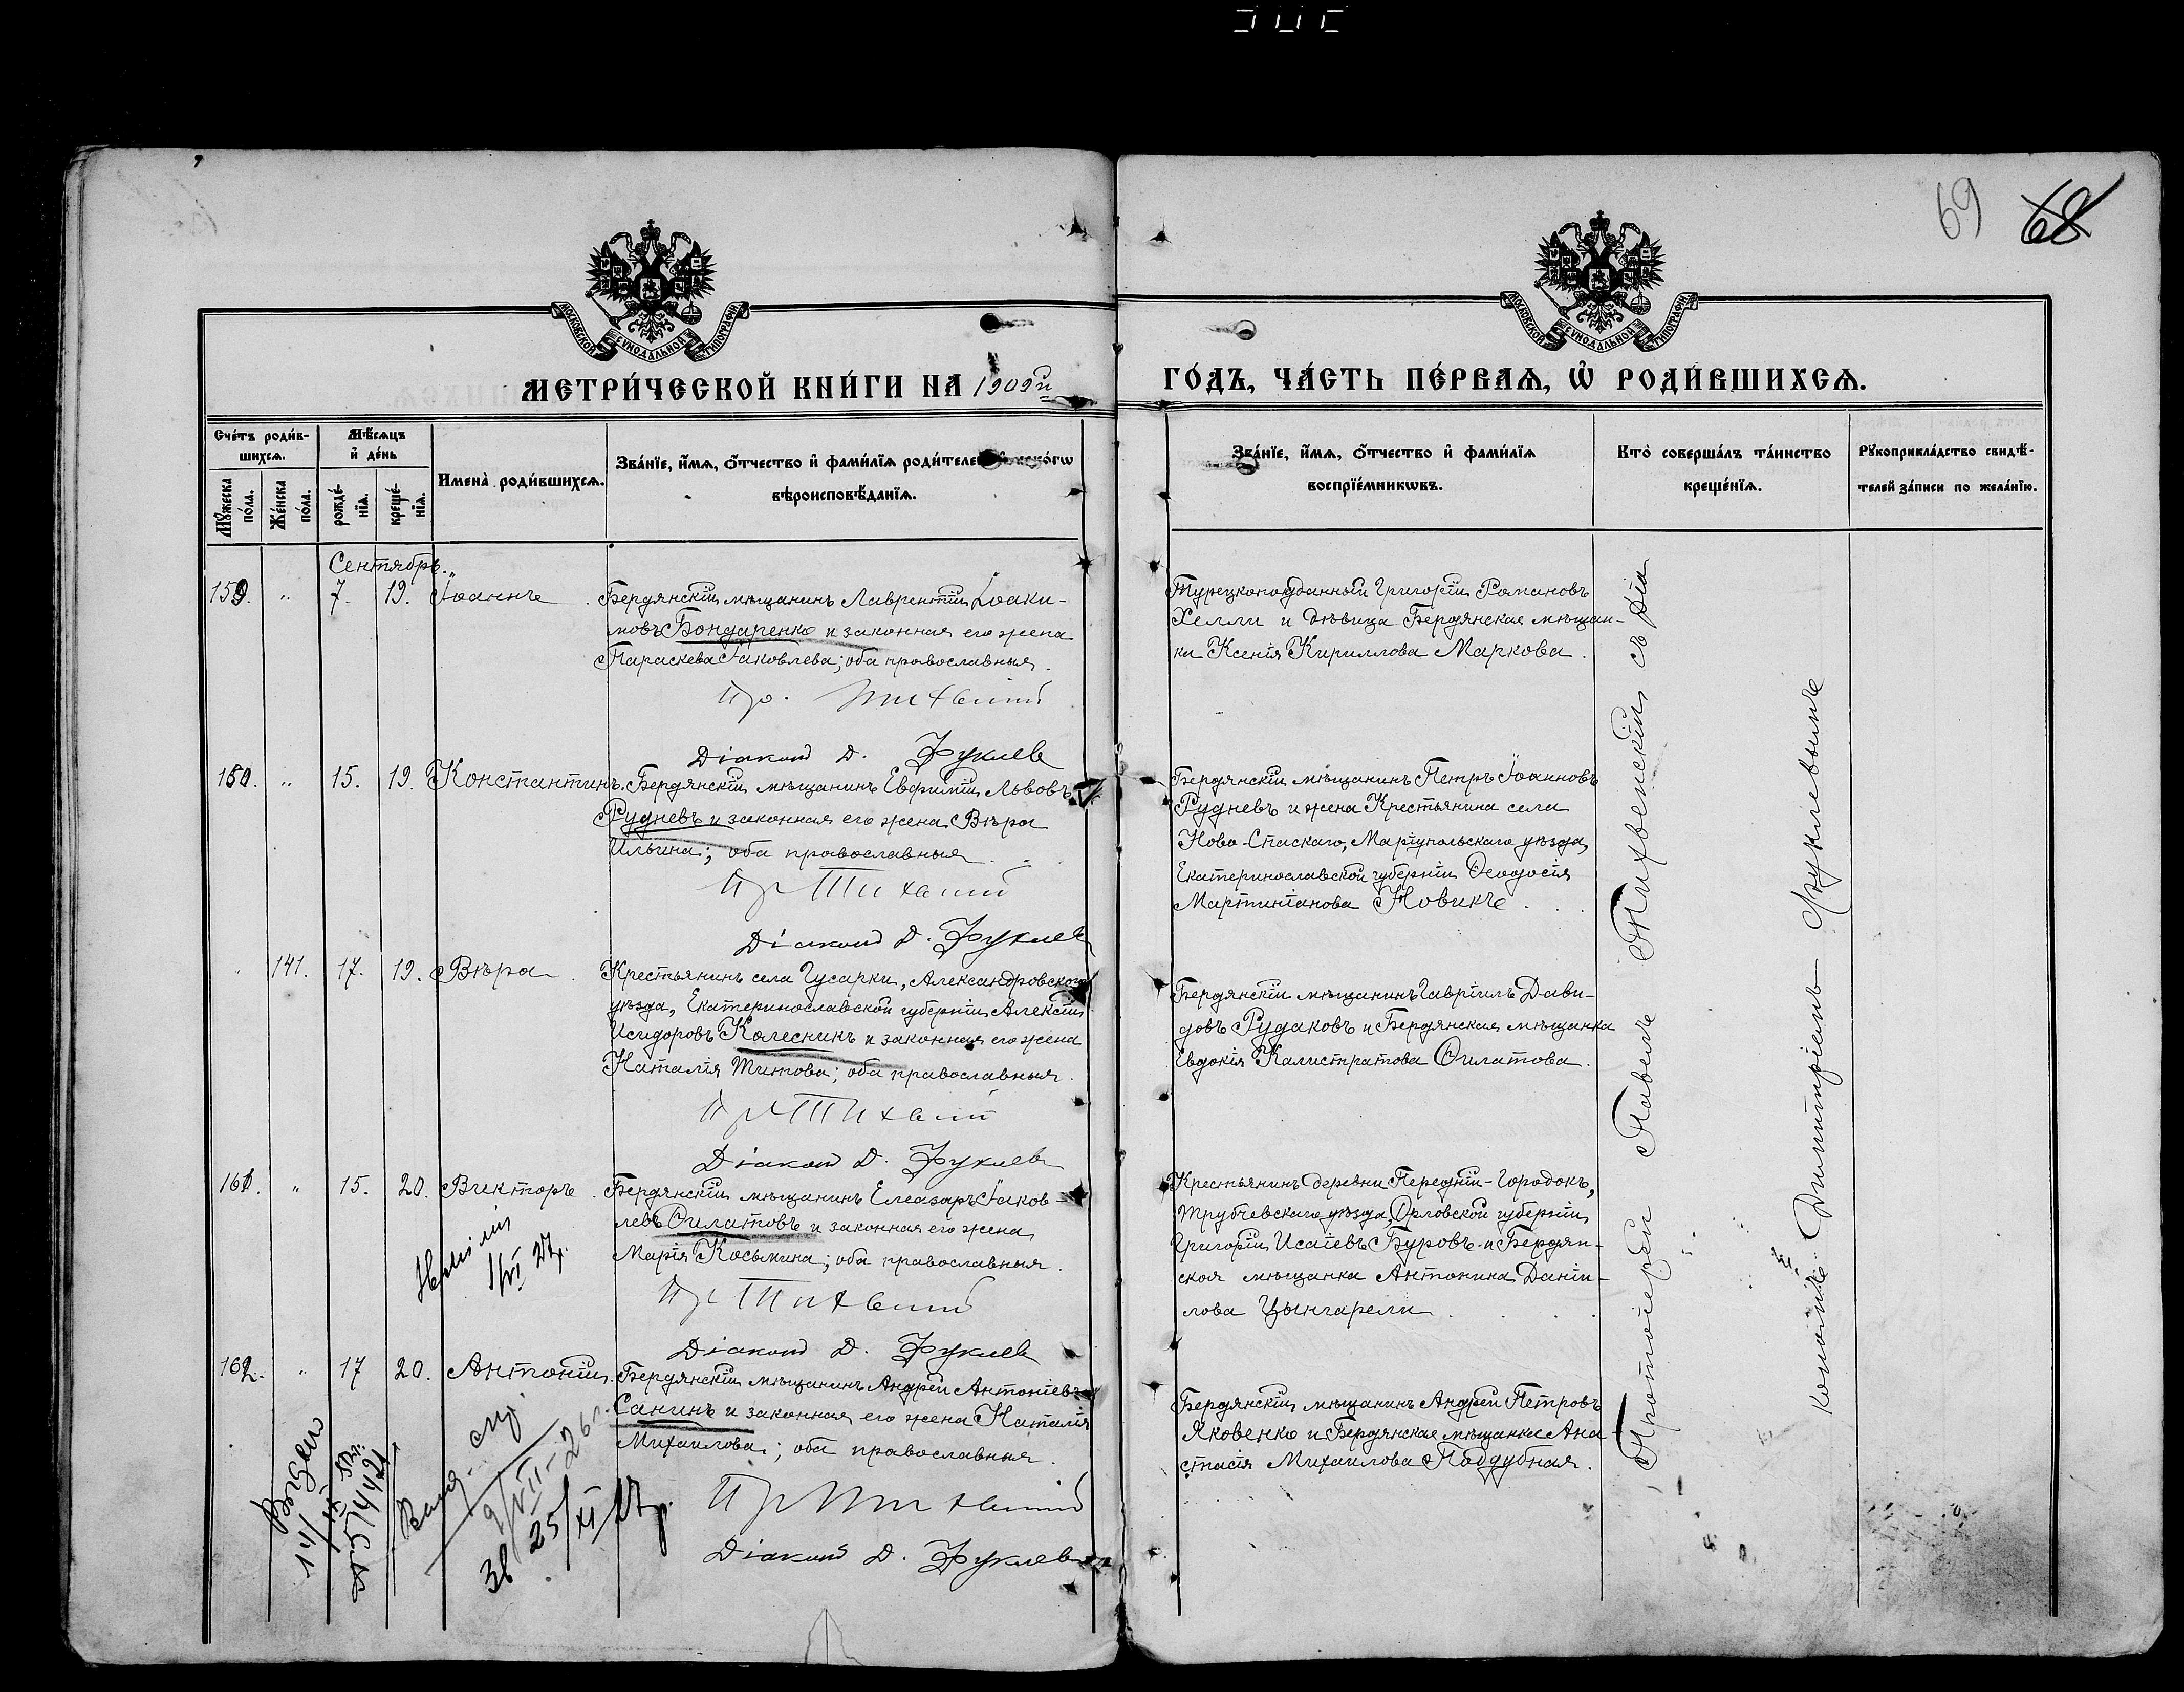 69 68
МОСКОВСКОЙ СѴНОДАЛЬНОЙ ТИПОГРАФІИ
МОСКОВСКОЙ СѴНОДАЛЬНОЙ ТИПОГРАФІИ
МЕТРИ́ЧЕСКОЙ КНИ́ГИ НА 1909й
ГО́ДЪ, ЧА́СТЬ ПЕ́РВАѦ, Ѽ РОДИ́ВШИХСѦ.
Сче́тъ роди́в-
шихсѧ.
Мꙋ́жеска по́ла.
Же́нска по́ла.
Мѣ́сѧцъ
и҆ де́нь
рожде́-
нїѧ.
креще́-
нїѧ.
Имена̀ роди́вшихсѧ.
Зва́нїе, и҆́мѧ, ѻ҆́тчество и҆ фами́лїѧ роди́телей
вѣроисповѣ́данїѧ.
Зва́нїе, и҆́мѧ, ѻ҆́тчество и҆ фами́лїѧ
воспрїе́мникѡвъ.
Кто̀ соверша́лъ та́инство
креще́нїѧ.
Рꙋкоприкла́дство свидѣ́-
телей за́писи по жела́нїю.
Сентябрь.
159. " 7. 19. Іоаннъ.
Бердянскій мѣщанинъ Лаврентій Іоаки-
мовъ Бондаренко и законная его жена
Параскева Іаковлева; оба православныя.
Діаконъ Д. Фуклев
Турецкоподданный Григорій Романовъ
Хелли и дѣвица Бердянская мѣщан-
ка Ксенія Кириллова Маркова.
160. " 15. 19. Константинъ.
Бердянскій мѣщанинъ Евфимій Львовъ
Рудневъ и законная его жена Вѣра
Ильина; оба православныя.
Діаконъ Д. Фуклев
Бердянскій мѣщанинъ Петръ Іоанновъ
Рудневъ и жена Крестьянина села
Ново-Спаскаго, Маріупольскаго уѣзда,
Екатеринославской губерніи Ѳеодосія
Мартиніанова Новикъ.
" 141. 17. 19. Вѣра.
Крестьянинъ села Гусарки, Александровского
уѣзда, Екатеринославской губерніи Алексій
Исидоровъ Колесникъ и законная его жена
Наталія Титова; оба православныя.
Діаконъ Д. Фуклев
Бердянскій мѣщанинъ Гавріилъ Дави-
довъ Рудаковъ и Бердянская мѣщанка
Евдокія Калистратова Филатова.
161. " 15. 20. Викторъ.
Бердянскій мѣщанинъ Елеазаръ Іаков-
левъ Филатовъ и законная его жена
Марія Косьмина; оба православныя.
Діаконъ Д. Фуклев
Крестьянинъ деревни Передній-Городокъ,
Трубчевскаго уѣзда, Орловской губерніи
Григорій Исаіевъ Буровъ и Бердян-
ская мѣщанка Антонина Даніи-
лова Цынгарели.
162. " 17 20. Антоній.
Бердянскій мѣщанинъ Андрей Антоніевъ
Санинъ и законная его жена Наталія
Михаилова; оба православныя.
Діаконъ Д. Фуклев
Бердянскій мѣщанинъ Андрей Петровъ
Яковенко и Бердянская мѣщанка Ана-
стасія Михаилова Поддубная.
Протоіерей Павелъ Тихвенскій съ діа-
кономъ Димитріемъ Фуклевымъ